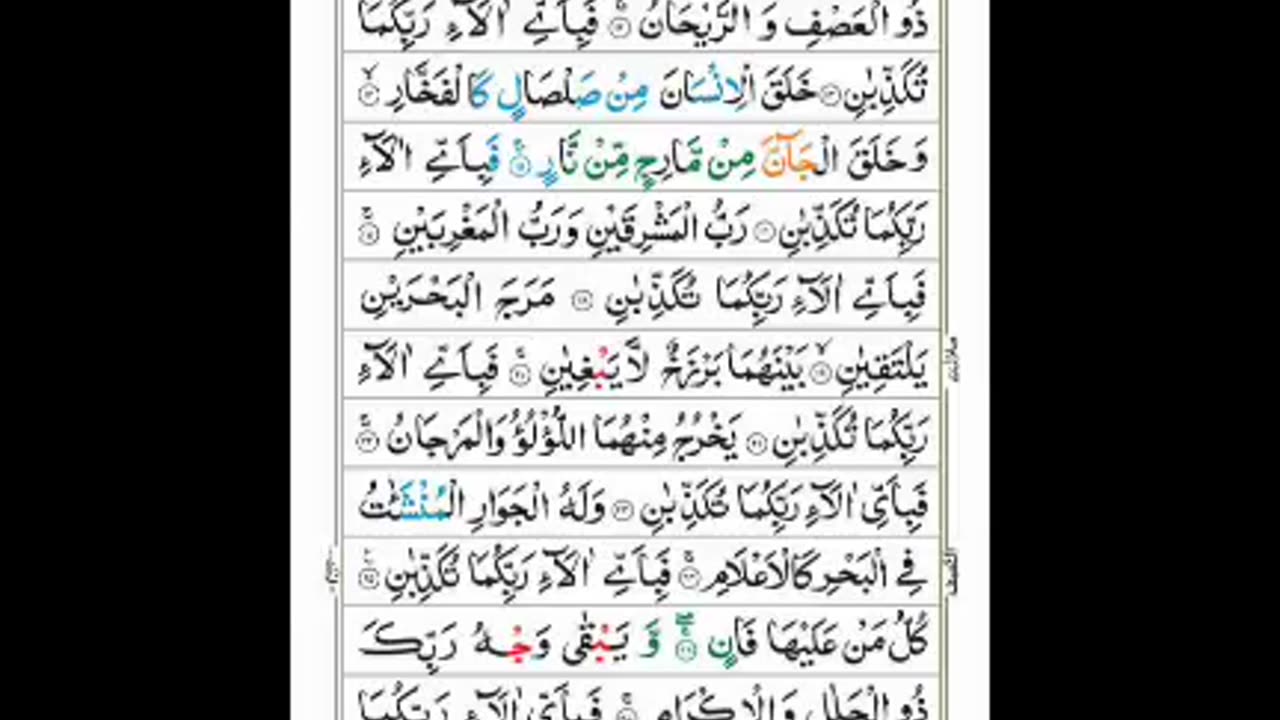 ذُو الْعَصْفِ وَ الرَّيْحَانُ ۝۱۲ فَبِاَيِّ اٰلَآءِ رَبِّكُمَا
تُكَذِّبٰنِ ۝۱۳ خَلَقَ الْاِنْسَانَ مِنْ صَلْصَالٍ كَالْفَخَّارِ ۝۱۴ۙ
وَ خَلَقَ الْجَآنَّ مِنْ مَّارِجٍ مِّنْ نَّارٍ ۝۱۵ۚ فَبِاَيِّ اٰلَآءِ
رَبِّكُمَا تُكَذِّبٰنِ ۝۱۶ رَبُّ الْمَشْرِقَيْنِ وَرَبُّ الْمَغْرِبَيْنِ ۝۱۷ۚ
فَبِاَيِّ اٰلَآءِ رَبِّكُمَا تُكَذِّبٰنِ ۝۱۸ مَرَجَ الْبَحْرَيْنِ
يَلْتَقِيٰنِ ۝۱۹ۙ بَيْنَهُمَا بَرْزَخٌ لَّا يَبْغِيٰنِ ۝۲۰ۚ فَبِاَيِّ اٰلَآءِ
رَبِّكُمَا تُكَذِّبٰنِ ۝۲۱ يَخْرُجُ مِنْهُمَا اللُّؤْلُؤُ وَالْمَرْجَانُ ۝۲۲ۚ
فَبِاَيِّ اٰلَآءِ رَبِّكُمَا تُكَذِّبٰنِ ۝۲۳ وَلَهُ الْجَوَارِ الْمُنْشَئٰتُ
فِي الْبَحْرِ كَالْاَعْلَامِ ۝۲۴ۚ فَبِاَيِّ اٰلَآءِ رَبِّكُمَا تُكَذِّبٰنِ ۝۲۵ۧ
كُلُّ مَنْ عَلَيْهَا فَانٍ ۝۲۶ۚۖ وَّ يَبْقٰى وَجْهُ رَبِّكَ
ذُو الْجَلٰلِ وَ الْاِكْرَامِ ۝۲۷ۚ فَبِاَيِّ اٰلَآءِ رَبِّكُمَا